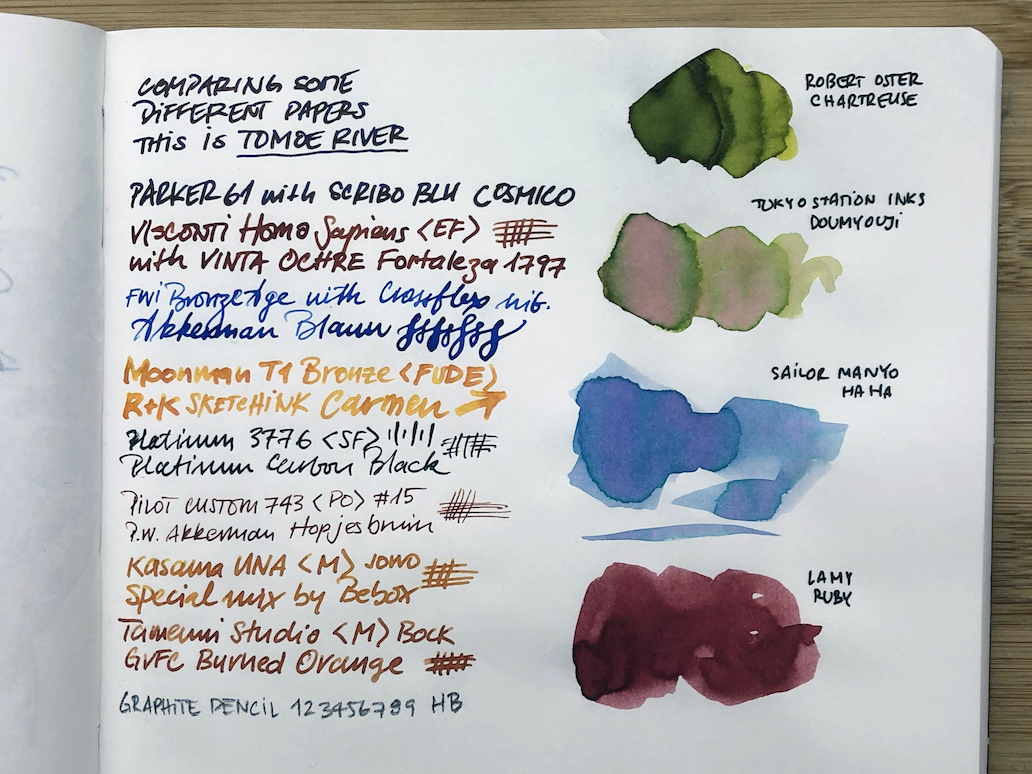 COMPARING SOME
DIFFERENT PAPERS
THis is TOMOE RIVER
PARKER 61 with SCRIBO BLU COSMICO
VISCONTI Homo Sapiens <EF>
with VINTA OCHRE Fortaleza 1797
FWI Bronze Age with Crossflex nib.
Akkerman Blauw
Moonman T1 Bronze <FUDE>
R+K SKETCHINK Carmen
Platinum 3776 <SF>
Platinum Carbon Black
PILOT CUSTOM 743 <PO> #15
P.W. Akkerman Hopjesbruin
Kasama UNA <M> JOWO
Special mix by Bebox
Tamenui Studio <M> Bock
GVFC Burned Orange
GRAPHITE PENCIL 123456789 HB
ROBERT OSTER
CHARTREUSE
TOKYO STATION INKS
DOUMYOUJI
SAILOR MANYO
HAHA
LAMY
RUBY